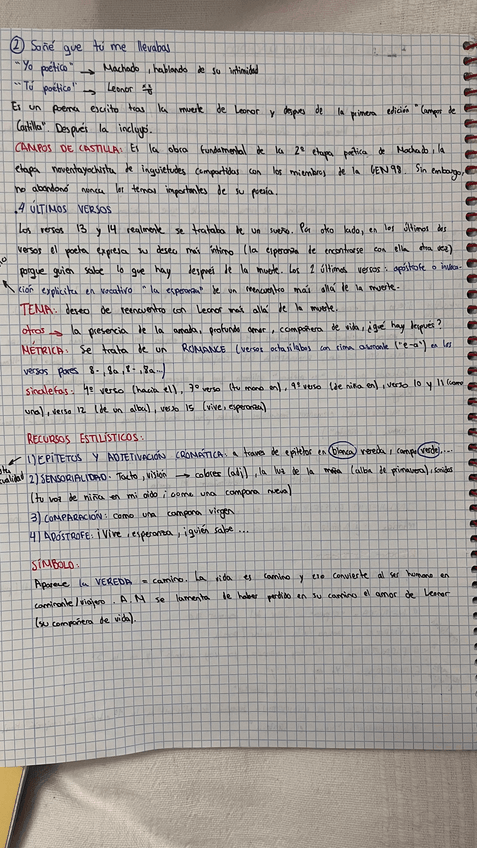 ② Soñé que tú me llevabas
"Yo poético" → Machado, hablando de su intimidad
"Tú poético" → Leonor
Es un poema escrito tras la muerte de Leonor y después de la primera edición "Campos de
Castilla". Después la incluyó.
CAMPOS DE CASTILLA: Es la obra fundamental de la 2ª etapa poética de Machado, la
etapa noventayochista de inquietudes compartidas con los miembros de la GEN 98. Sin embargo,
no abandonó nunca los temas importantes de su poesía.
4 ÚLTIMOS VERSOS
Los versos 13 y 14 realmente se trataba de un sueño. Por otro lado, en los últimos dos
versos el poeta expresa su deseo más íntimo (la esperanza de encontrarse con ella otra vez)
porque quien sabe lo que hay después de la muerte. Los 2 últimos versos: apóstrofe o invoca-
ción explícita en vocativo "la esperanza" de un reencuentro más allá de la muerte.
TEMA: deseo de reencuentro con Leonor más allá de la muerte.
otros → la presencia de la amada, profundo amor, compañera de vida, ¿qué hay después?
MÉTRICA: Se trata de un ROMANCE (versos octosílabos con rima asonante ("e-a") en los
versos pares 8-, 8a, 8-, 8a...)
sinalefas: 4º verso (hacia el), 7º verso (tu mano en), 9º verso (de niña en), verso 10 y 11 (como
una), verso 12 (de un alba), verso 15 (vive, esperanza)
RECURSOS ESTILÍSTICOS:
1) EPÍTETOS Y ADJETIVACIÓN CROMÁTICA: a través de epítetos en blanca vereda, campo verde, ...
2) SENSORIALIDAD: Tacto, visión → colores (adj), la luz de la (alba de primavera), sonidos
(tu voz de niña en mi oído; como una campana nueva)
3) COMPARACIÓN: como una campana virgen
4) APÓSTROFE: ¡Vive, esperanza, ¡quién sabe...
SÍMBOLO:
Aparece la VEREDA = camino. La vida es camino y eso convierte al ser humano en
caminante/viajero. A.M se lamenta de haber perdido en su camino el amor de Leonor
(su compañera de vida).